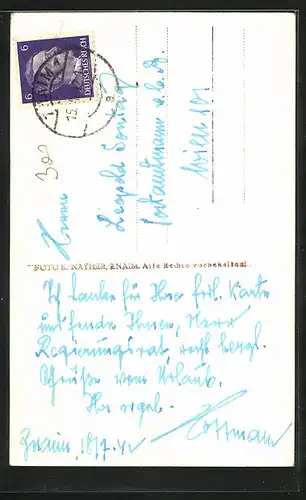 6
DEUTSCHES REICH
6
ZNAIM 1
15.
a
300
Herrn
Leopold Sonntag
Postamtmann
Wien 101
FOTO E. MATHEIR, ZNAIM. Alle Rechte vorbehalten!
Ich danke für Ihre frdl. Karte
und sende Ihnen, Herr
Regierungsrat, recht herzl.
Grüße vom Urlaub.
Ihr ergeb.
Znaim, 18/7. 42